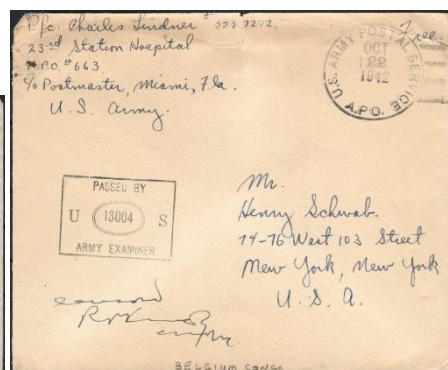 Pfc. Charles Lindner
23rd Station Hospital
A.P.O. # 663
c/o Postmaster, Miami, Fla.
U. S. Army.
Free.
U.S. ARMY POSTAL SERVICE
OCT
22
1942
A.P.O.
PASSED BY
U 13004 S
ARMY EXAMINER
Mr.
Henry Schwab.
74-76 West 103 Street
New York, New York
U. S. A.
BELGIUM CONGO